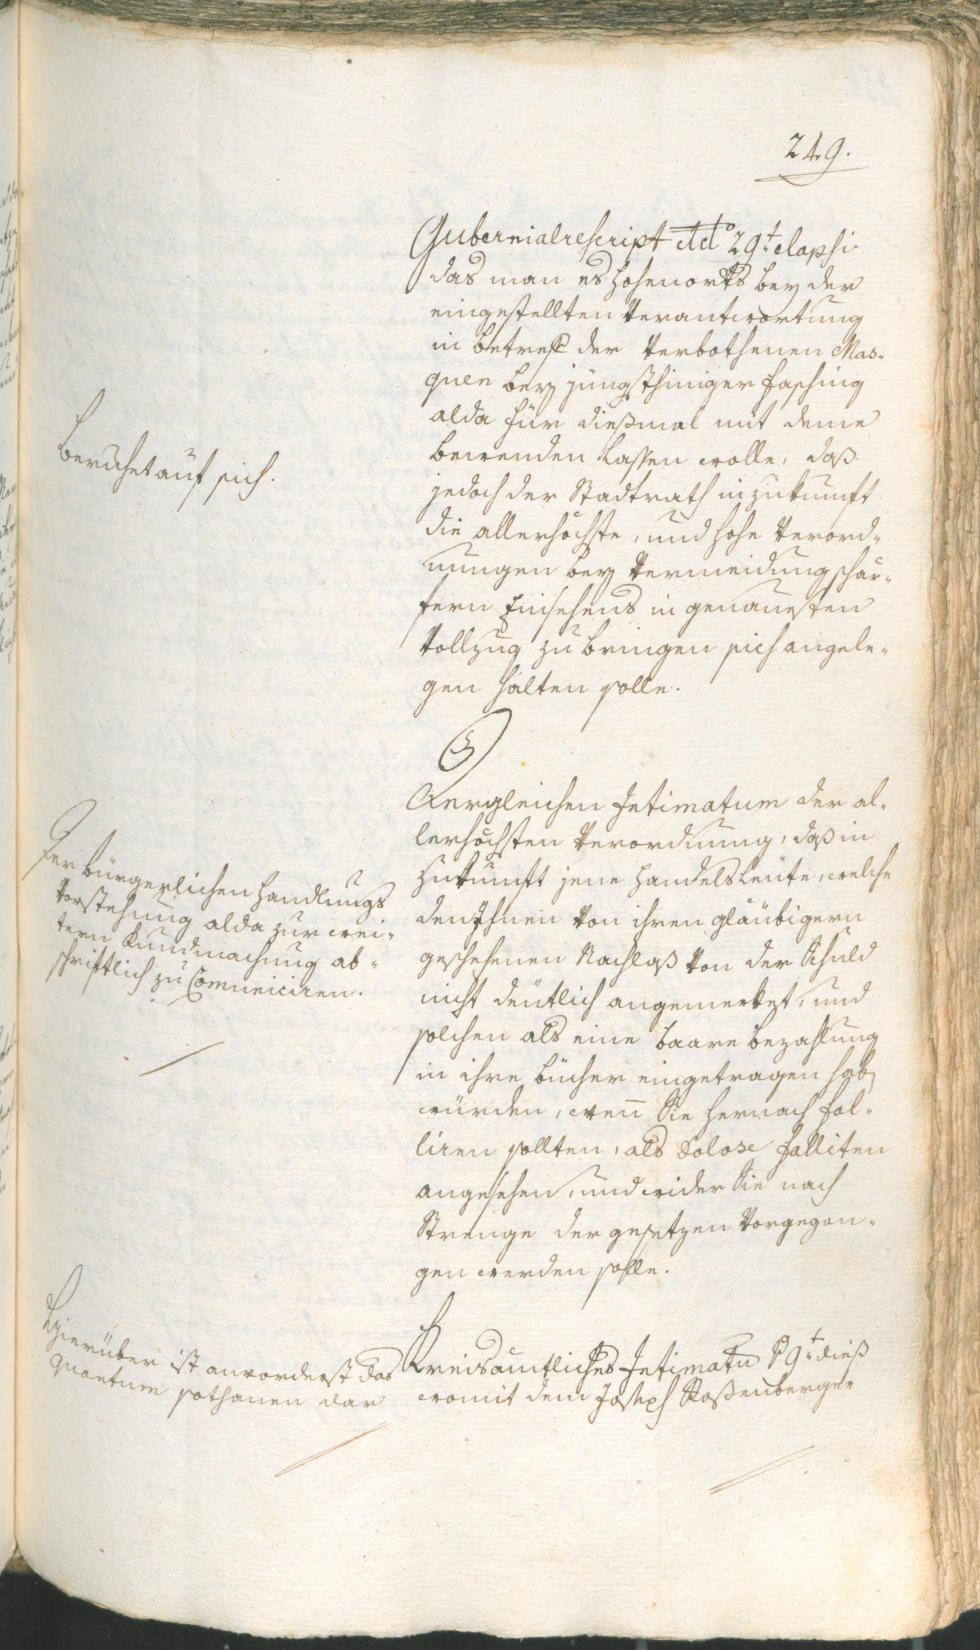 249.
Gubernialrescript dtd° 29t elapsi
das man es hohenorts bey der
eingestellten Verantwortung
in betref der Verbothenen Mas-
quen bey jüngsthiniger Fasching
alda für dießmal mit deme
bewenden lassen wolle, daß
jedoch der Stadtrath inzukumft
die allerhöchste, und hohe Verord-
nungen bey Vermeidung schär-
fern Einsehens in genauesten
Vollzug zu bringen sich angele-
gen halten solle.
beruhet auf sich.
Dergleichen Intimatum der al-
lerhöchsten Verordnung, daß in
Zukumft jene Handelsleüte, welche
den Ihnen von ihren gläübigern
geschehenen Nachlaß von der Schuld
nicht deütlich angemerket, und
solchen als eine baare bezahlung
in ihre bücher eingetragen hab
würden, wen̄ Sie hernach fal-
liren sollten, als dolose falliten
angesehen, und wider Sie nach
Strenge der gesetzen Vorgegan-
gen werden solle.
Der bürgerlichen Handlungs
Vorstehung alda zur wei-
tern Kundmachung ab-
schriftlich zu Com̄uniciren.
Kreisämtliches Intimatum 9t dieß
womit dem Joseph Roßenberger
Hierüber ist anvorderst das
Quantum sothanen dar